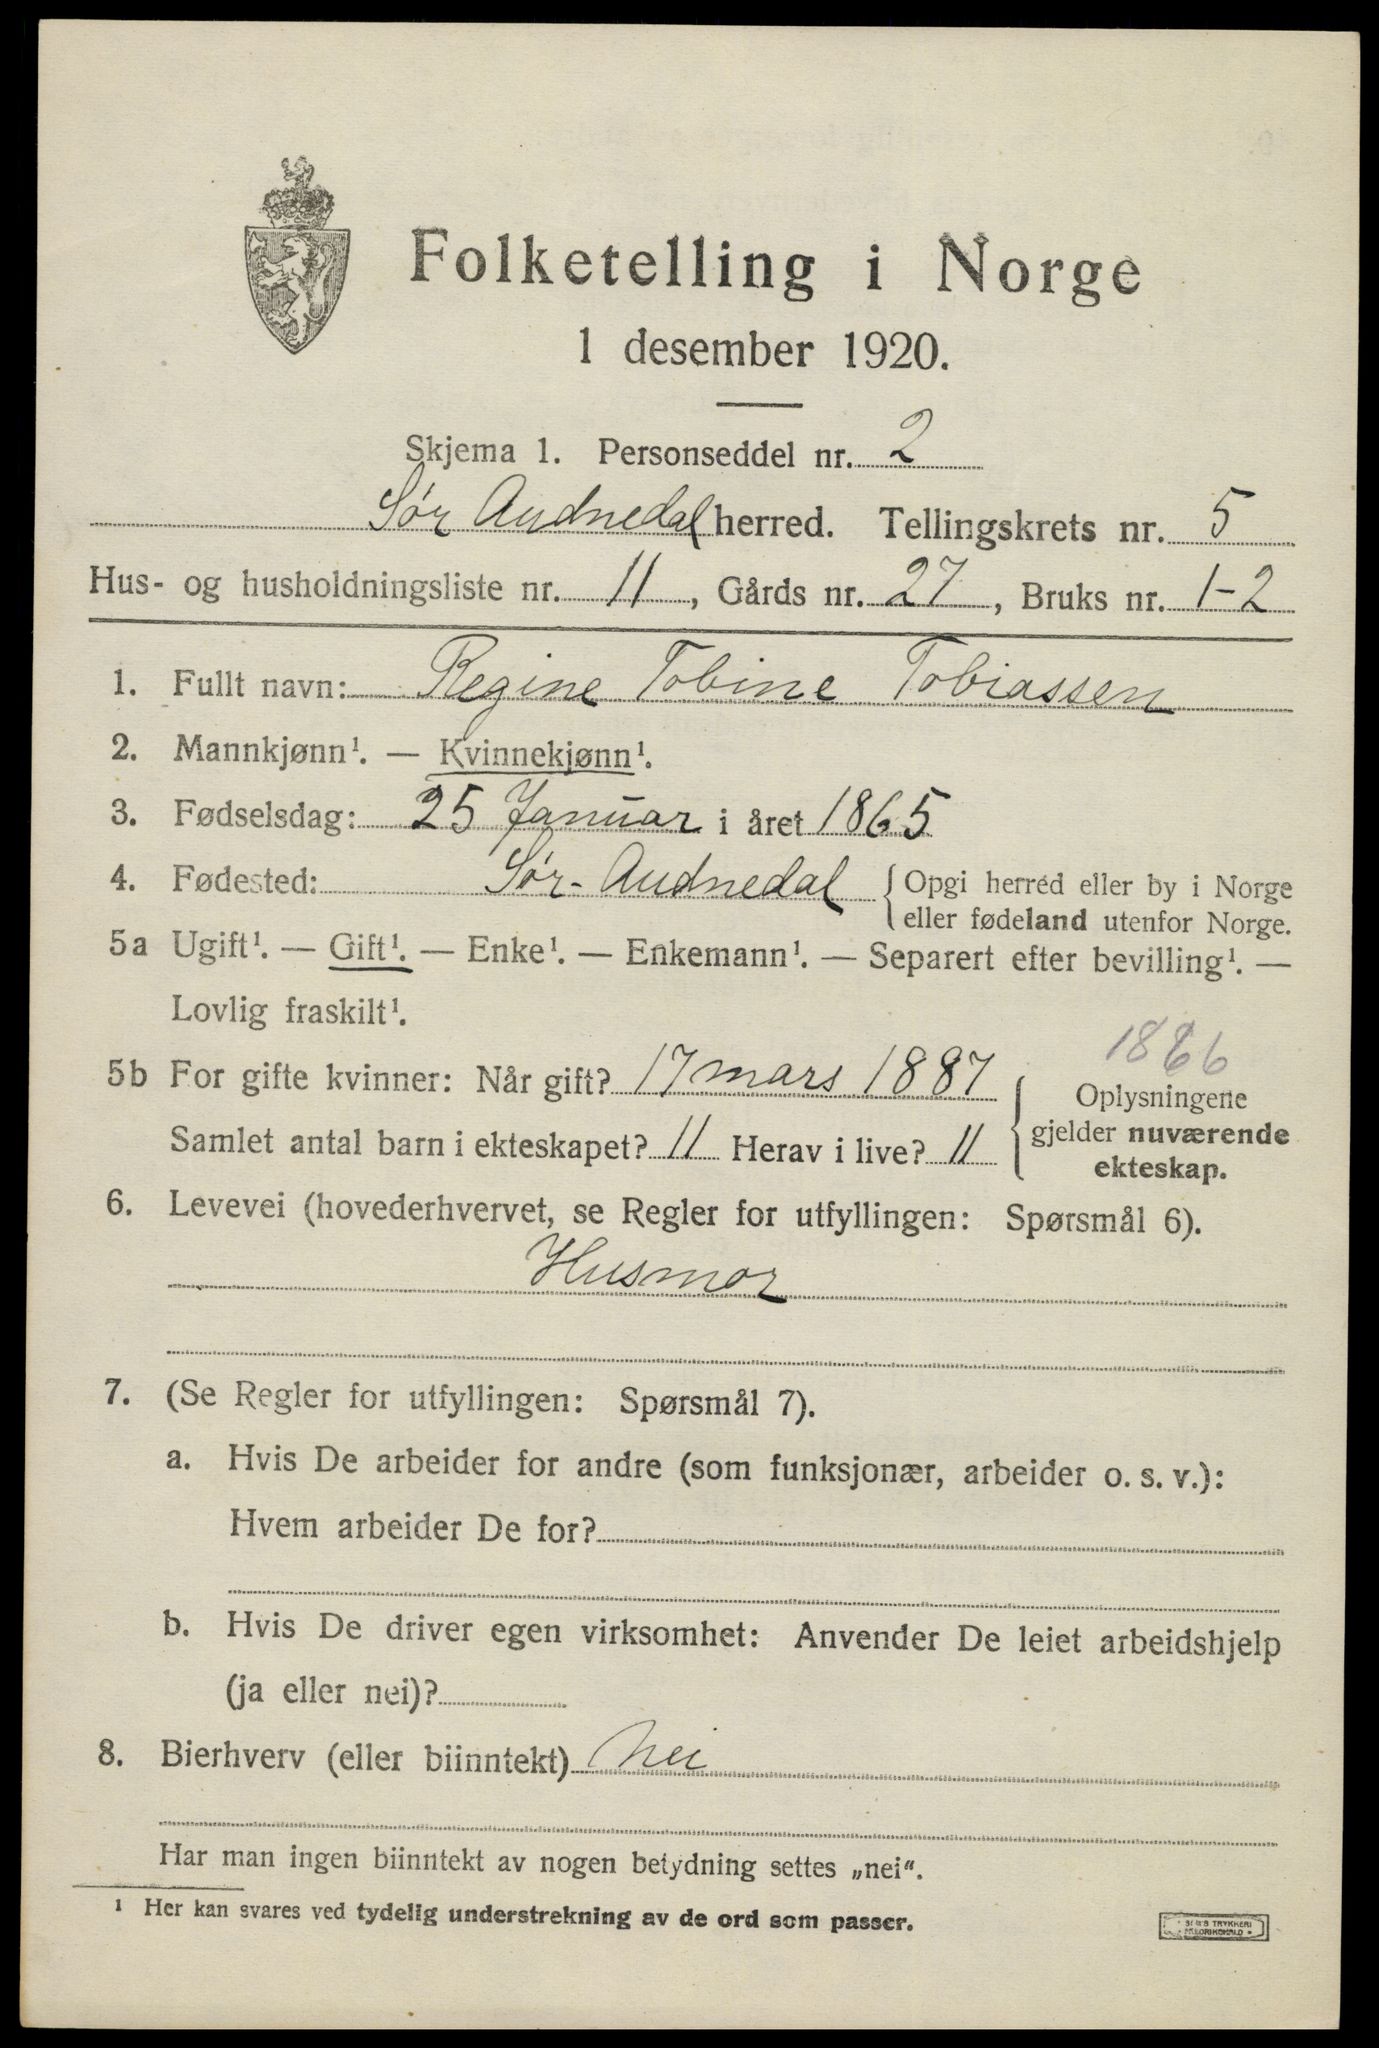 Folketelling i Norge
1 desember 1920.
Skjema 1. Personseddel nr. 2
Sør Audnedal herred. Tellingskrets nr. 5
Hus- og husholdningsliste nr. 11, Gårds nr. 27, Bruks nr. 1-2
1. Fullt navn: Regine Tobine Tobiassen
2. Mannkjønn¹. — Kvinnekjønn¹.
3. Fødselsdag: 25 Januar i året 1865
4. Fødested: Sør-Audnedal { Opgi herred eller by i Norge
eller fødeland utenfor Norge.
5a Ugift¹. — Gift¹. — Enke¹. — Enkemann¹. — Separert efter bevilling¹. —
Lovlig fraskilt¹.
1886
5b For gifte kvinner: Når gift? 17 mars 1887
Samlet antal barn i ekteskapet? 11 Herav i live? 11
Oplysningene
gjelder nuværende
ekteskap.
6. Levevei (hovederhvervet, se Regler for utfyllingen: Spørsmål 6).
Husmor
7. (Se Regler for utfyllingen: Spørsmål 7).
a. Hvis De arbeider for andre (som funksjonær, arbeider o. s. v.):
Hvem arbeider De for?
b. Hvis De driver egen virksomhet: Anvender De leiet arbeidshjelp
(ja eller nei)?
8. Bierhverv (eller biinntekt) Nei
Har man ingen biinntekt av nogen betydning settes „nei“.
¹ Her kan svares ved tydelig understrekning av de ord som passer.
TRYKKERI
FREDRIKSHALD